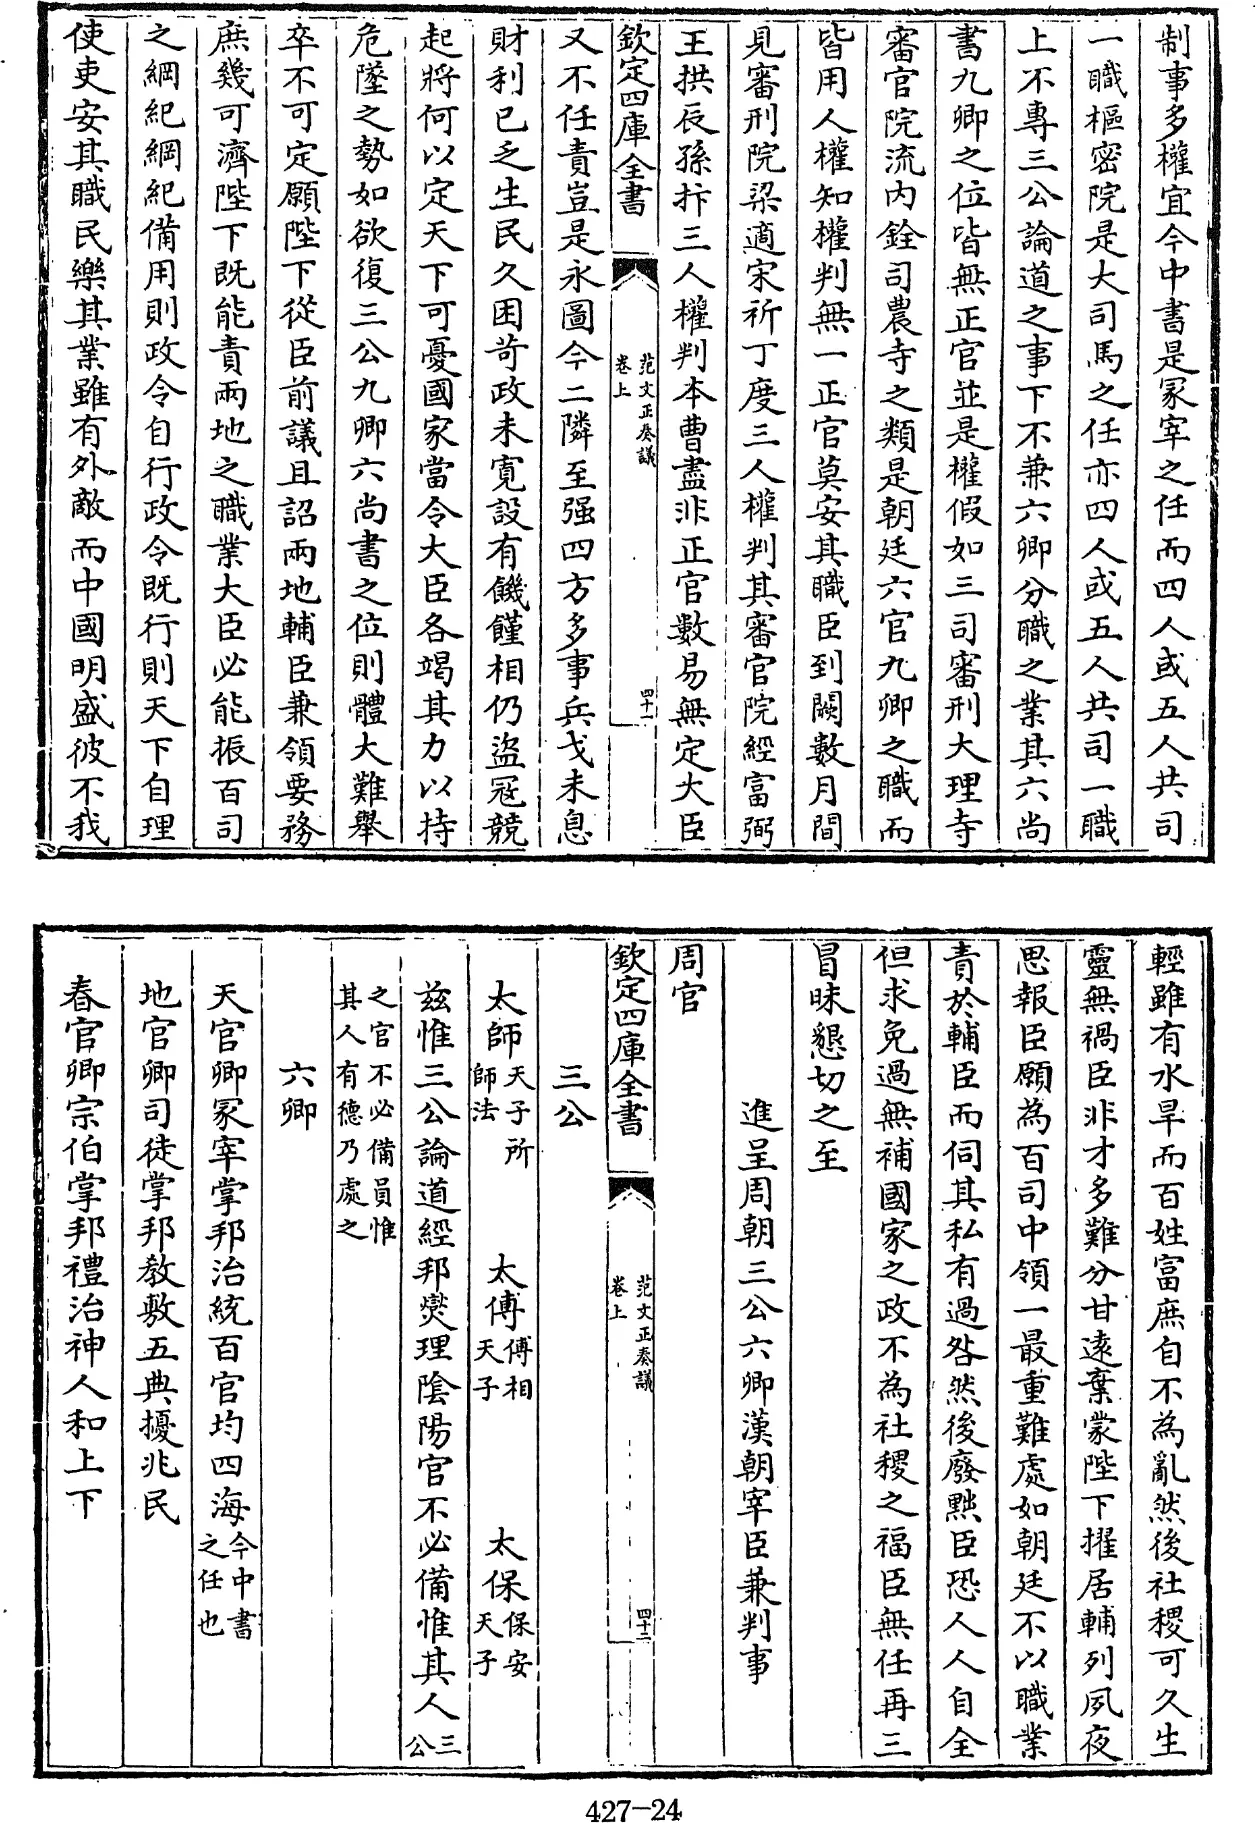 制事多權宜今中書是冡宰之任而四人或五人共司
一職樞密院是大司馬之任亦四人或五人共司一職
上不專三公論道之事下不兼六卿分職之業其六尚
書九卿之位皆無正官並是權假如三司審刑大理寺
審官院流内銓司農寺之類是朝廷六官九卿之職而
皆用人權知權判無一正官莫安其職臣到闕數月間
見審刑院梁適宋祈丁度三人權判其審官院經富弼
王拱辰孫抃三人權判本曹盡非正官數易無定大臣
欽定四庫全書
范文正奏議
卷上
四十一
又不任責豈是永圖今二隣至强四方多事兵戈未息
財利已乏生民久困苛政未寛設有饑饉相仍盜冦競
起將何以定天下可憂國家當令大臣各竭其力以持
危墜之勢如欲復三公九卿六尚書之位則體大難舉
卒不可定願陛下從臣前議且詔兩地輔臣兼領要務
庶幾可濟陛下既能責兩地之職業大臣必能振百司
之綱紀綱紀備用則政令自行政令既行則天下自理
使吏安其職民樂其業雖有外敵而中國明盛彼不我
輕雖有水旱而百姓富庶自不為亂然後社稷可久生
靈無禍臣非才多難分甘逺棄蒙陛下擢居輔列夙夜
思報臣願為百司中領一最重難處如朝廷不以職業
責於輔臣而伺其私有過咎然後廢黜臣恐人人自全
但求免過無補國家之政不為社稷之福臣無任再三
冒昧懇切之至
進呈周朝三公六卿漢朝宰臣兼判事
周官
欽定四庫全書
范文正奏議
卷上
四十二
三公
太師天子所師法 太傅傅相天子 太保保安天子
兹惟三公論道經邦爕理陰陽官不必備惟其人三公
之官不必備員惟其人有德乃處之
六卿
天官卿冡宰掌邦治統百官均四海今中書之任也
地官卿司徒掌邦教敷五典擾兆民
春官卿宗伯掌邦禮治神人和上下
427-24